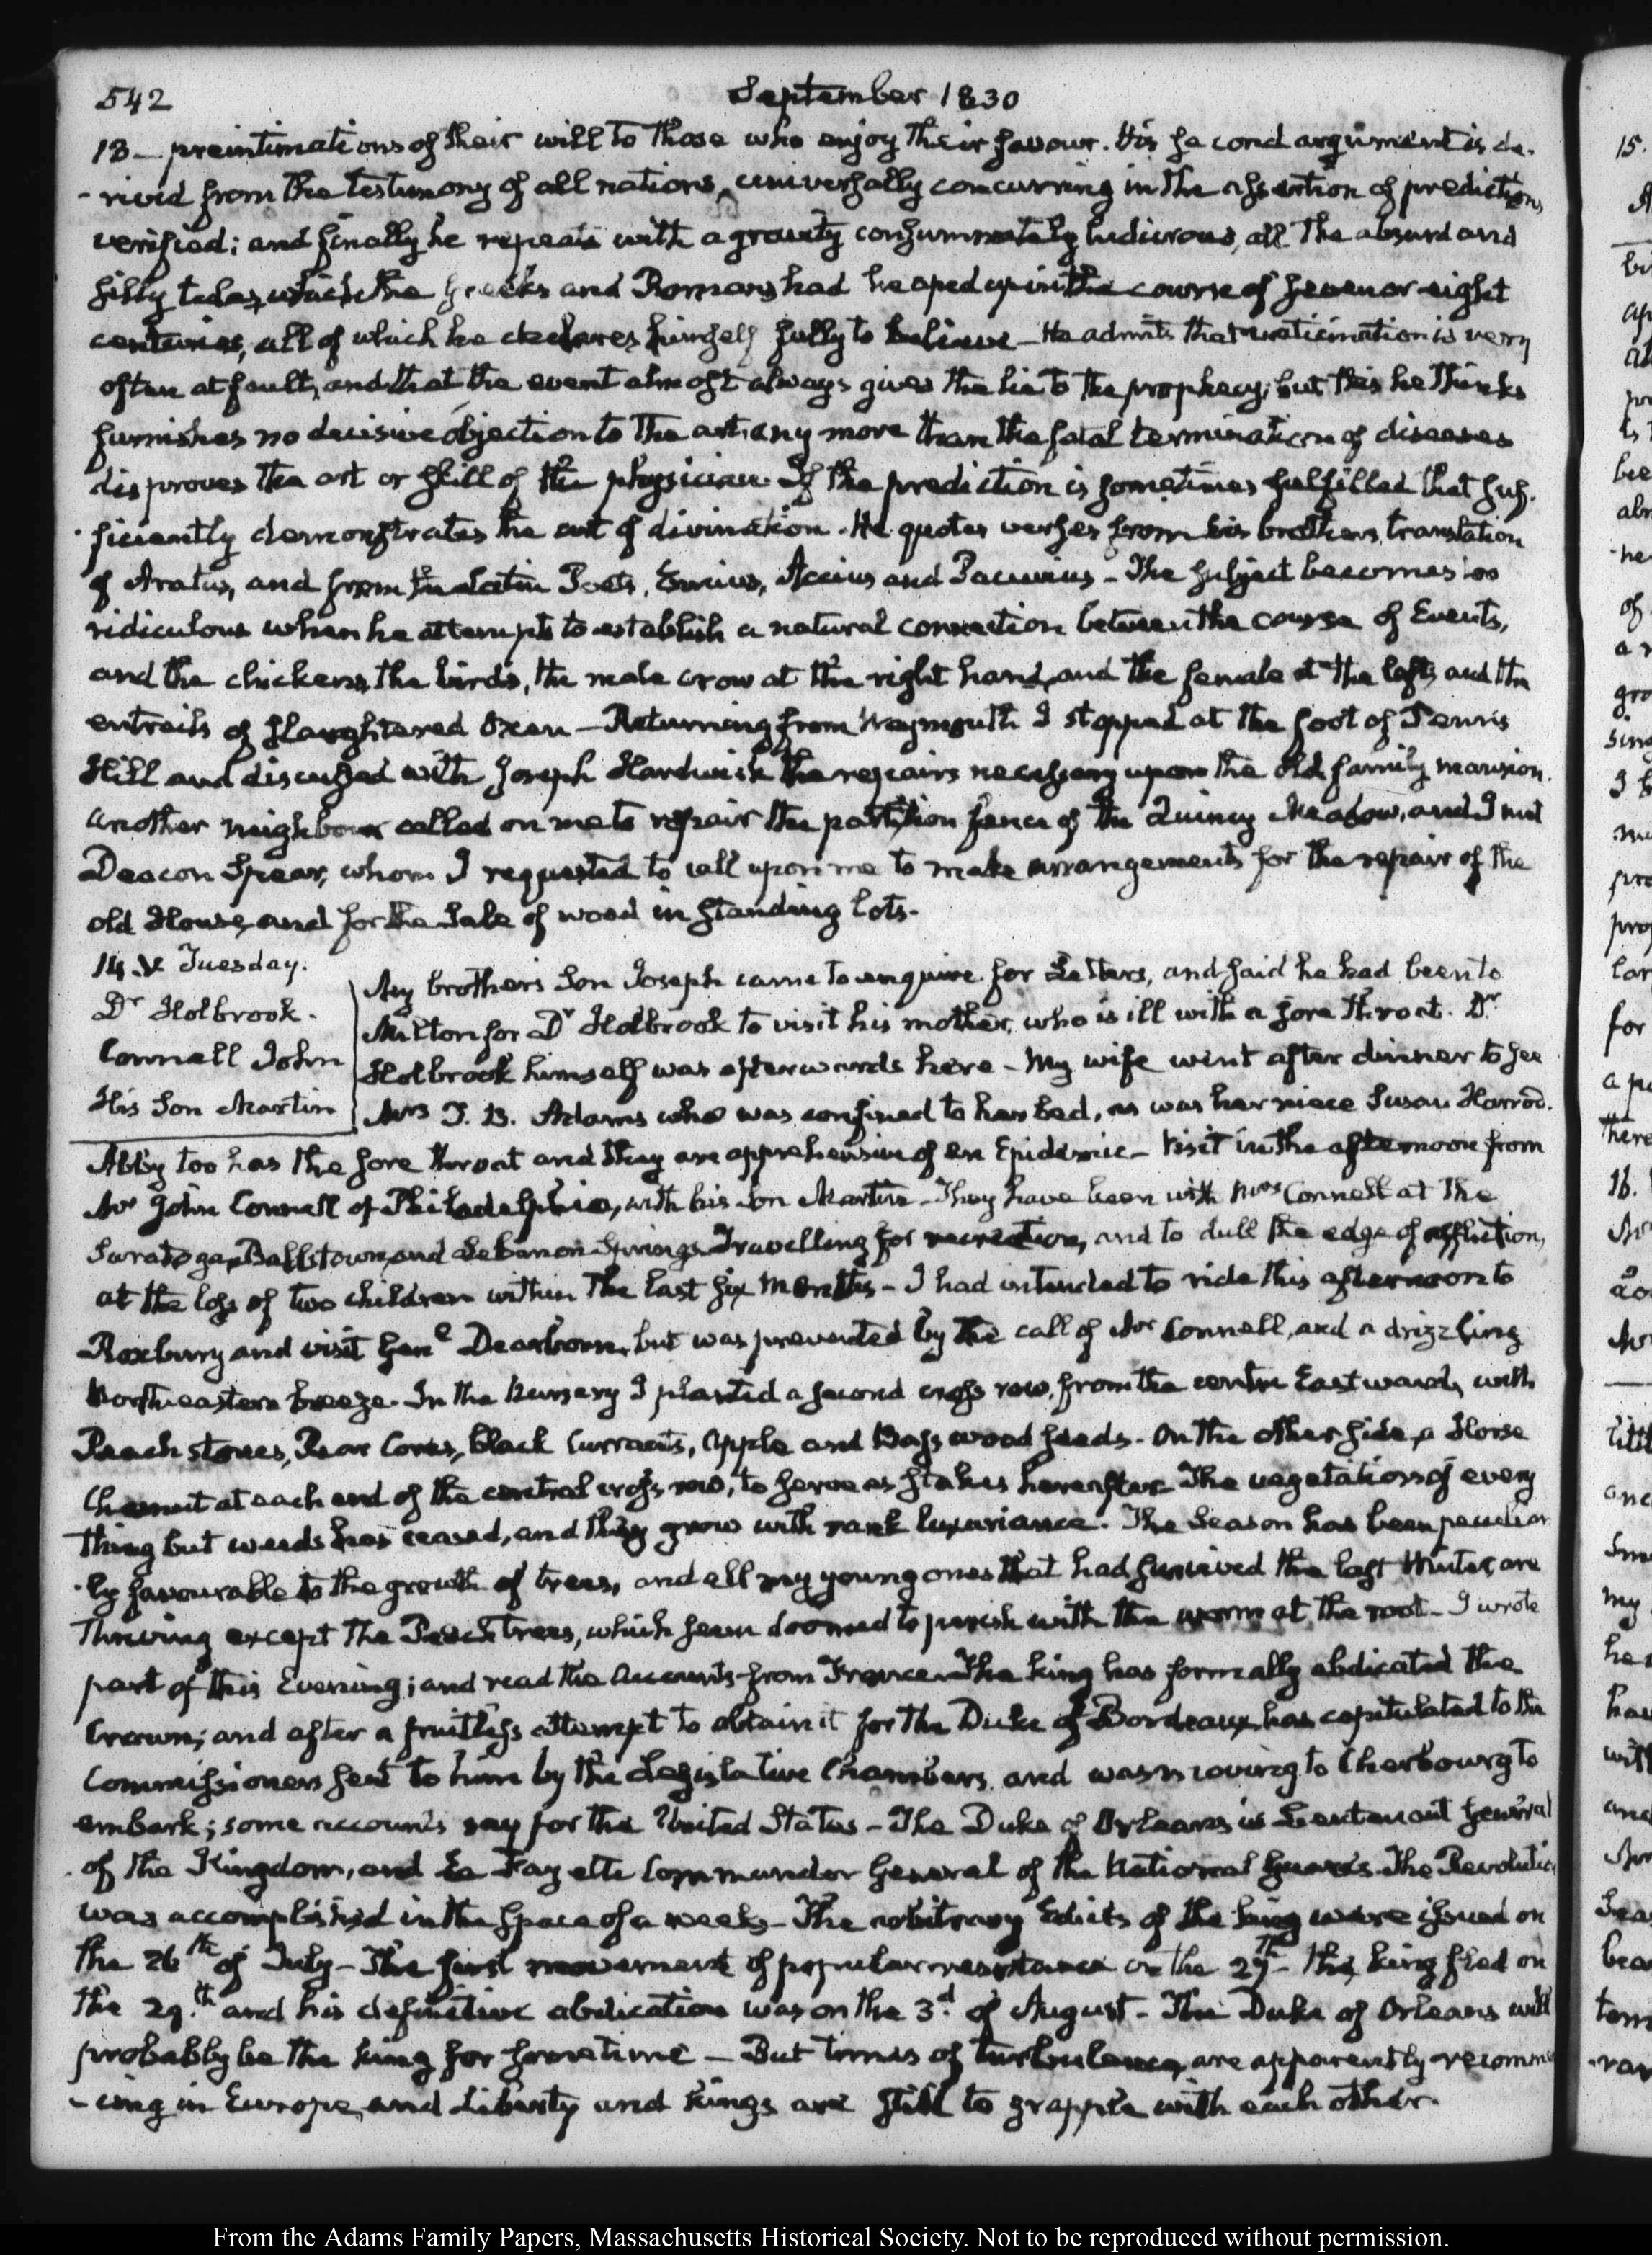 542
September 1830
13 — preintimations of their will to those who enjoy their favour. His second argument is de-
-rived from the testimony of all nations, universally concurring in the assertion of predictions
verified: and finally he repeats with a gravity consummately ludicrous, all the absurd and
silly tales, which the Greeks and Romans had heaped up in the course of seven or eight
centuries, all of which he declares himself fully to believe — He admits that vaticination is very
often at fault, and that the event almost always gives the lie to the prophecy; but this he thinks
furnishes no decisive objection to the art, any more than the fatal termination of diseases
disproves the art or skill of the physician. If the prediction is sometimes fulfilled that suf-
-ficiently demonstrates the art of divination. He quotes verses from his brothers translation
of Aratus, and from the Latin Poets, Ennius, Accius and Pacuvius — The subject becomes too
ridiculous when he attempts to establish a natural connection between the course of Events,
and the chickens, the birds, the male crow at the right hand, and the female at the left, and the
entrails of slaughtered Oxen — Returning from Weymouth I stopped at the foot of Penns
Hill and discussed with Joseph Hardwick the repairs necessary upon the old family mansion.
Another neighbour called on me to repair the partition fence of the Quincy Meadow, and I met
Deacon Spear, whom I requested to call upon me to make arrangements for the repair of the
old House, and for the Sale of wood in standing lots.
14. V. Tuesday.
Dr Holbrook.
Connell John
His Son Martin
My brother's Son Joseph came to enquire for Letters, and said he had been to
Milton for Dr Holbrook to visit his mother, who is ill with a sore throat. Dr
Holbrook himself was afterwards here — My wife went after dinner to see
Mrs T. B. Adams who was confined to her bed, as was her niece Susan Harrod.
Abby too has the sore throat and they are apprehensive of an Epidemic — Visit in the afternoon from
Mr John Connell of Philadelphia, with his Son Martin — They have been with Mrs Connell at the
Saratoga, Ballstown, and Lebanon Springs Travelling for recreation, and to dull the edge of affliction,
at the loss of two children within the last six Months — I had intended to ride this afternoon to
Roxbury and visit Genl Dearborn, but was prevented by the call of Mr Connell, and a drizzling
Northeastern breeze. In the Nursery I planted a second cross row, from the centre Eastward, with
Peach stones, Pear Cores, black Currants, Apple and Bass wood seeds. On the other side, a Horse
Chesnut at each end of the central cross row, to serve as stakes hereafter. The vegetation of every
thing but weeds has ceased, and they grow with rank luxuriance. The Season has been peculiar
-ly favourable to the growth of trees, and all my young ones that had survived the last Winter, are
thriving except the Peach trees, which seem doomed to perish with the worm at the root — I wrote
part of this Evening; and read the Accounts from France. The king has formally abdicated the
Crown; and after a fruitless attempt to obtain it for the Duke of Bordeaux, has capitulated to the
Commissioners sent to him by the Legislative Chambers, and was moving to Cherbourg to
embark; some accounts say for the United States — The Duke of Orleans is Lieutenant General
of the Kingdom, and La Fayette Commander General of the National Guards. The Revolution
was accomplished in the space of a week — The arbitrary Edicts of the king were issued on
the 26th of July — The first movement of popular resistance on the 27th the king fled on
the 29.th and his definitive abdication was on the 3.d of August — The Duke of Orleans will
probably be the king for sometime — But times of turbulence, are apparently recommen
-cing in Europe, and Liberty and kings are still to grapple with each other.
From the Adams Family Papers, Massachusetts Historical Society. Not to be reproduced without permission.